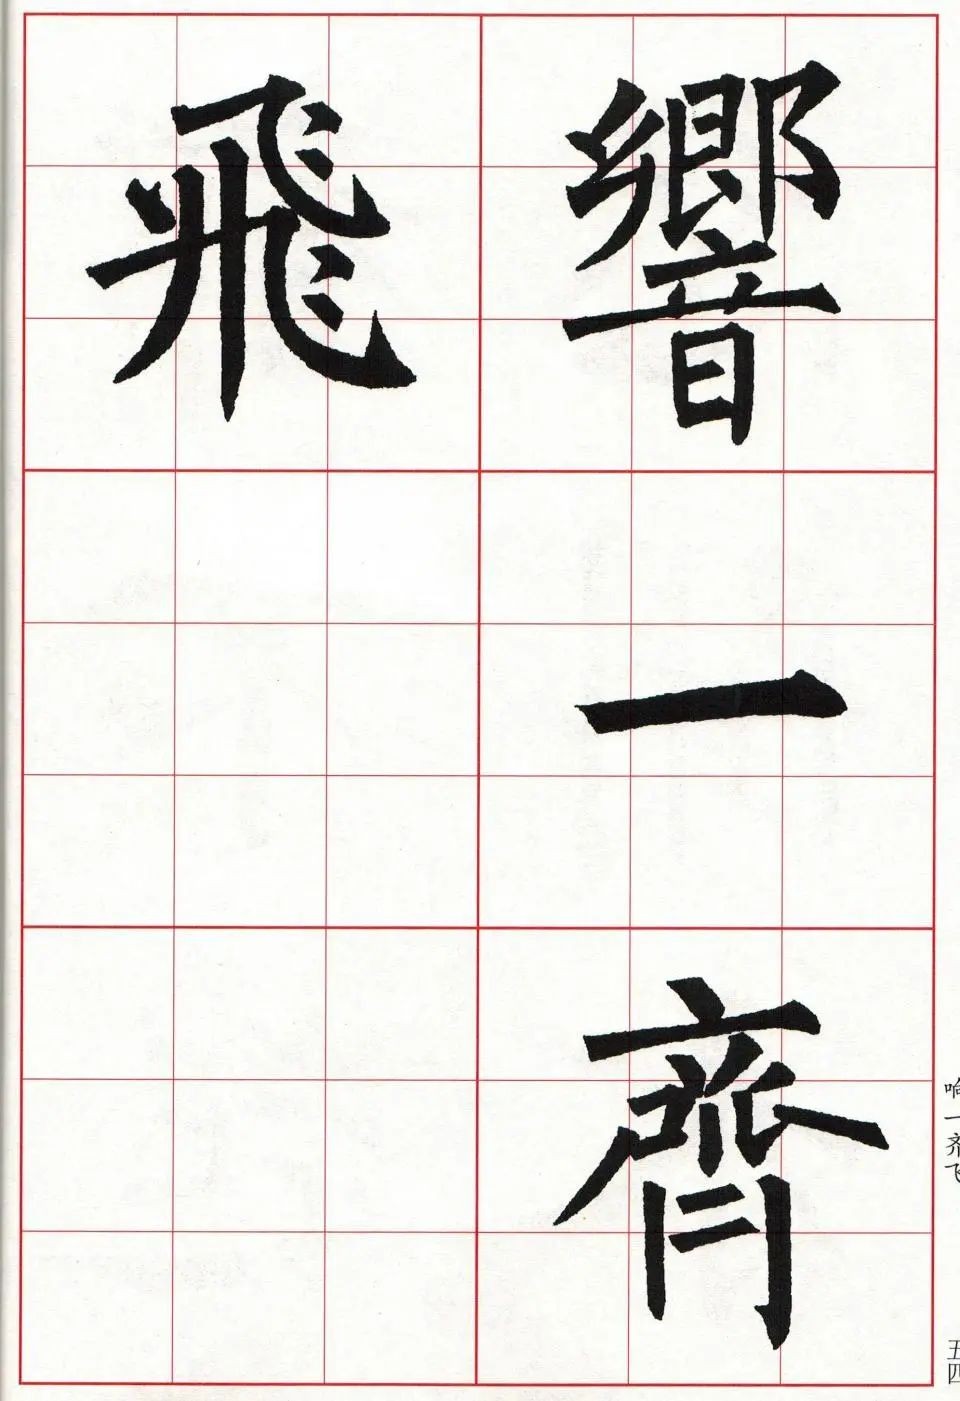 響一齊
飛
响一齐飞
五四